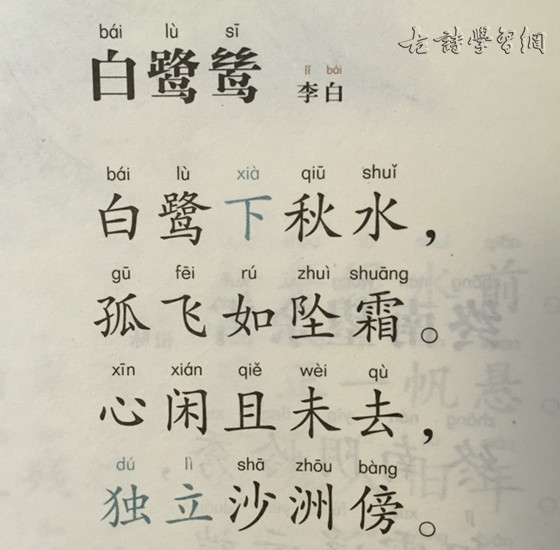 古詩學習網
bái lù sī
白鹭鸶
lǐ bái
李白
bái lù xià qiū shuǐ
白鹭下秋水，
gū fēi rú zhuì shuāng
孤飞如坠霜。
xīn xián qiě wèi qù
心闲且未去，
dú lì shā zhōu bàng
独立沙洲傍。